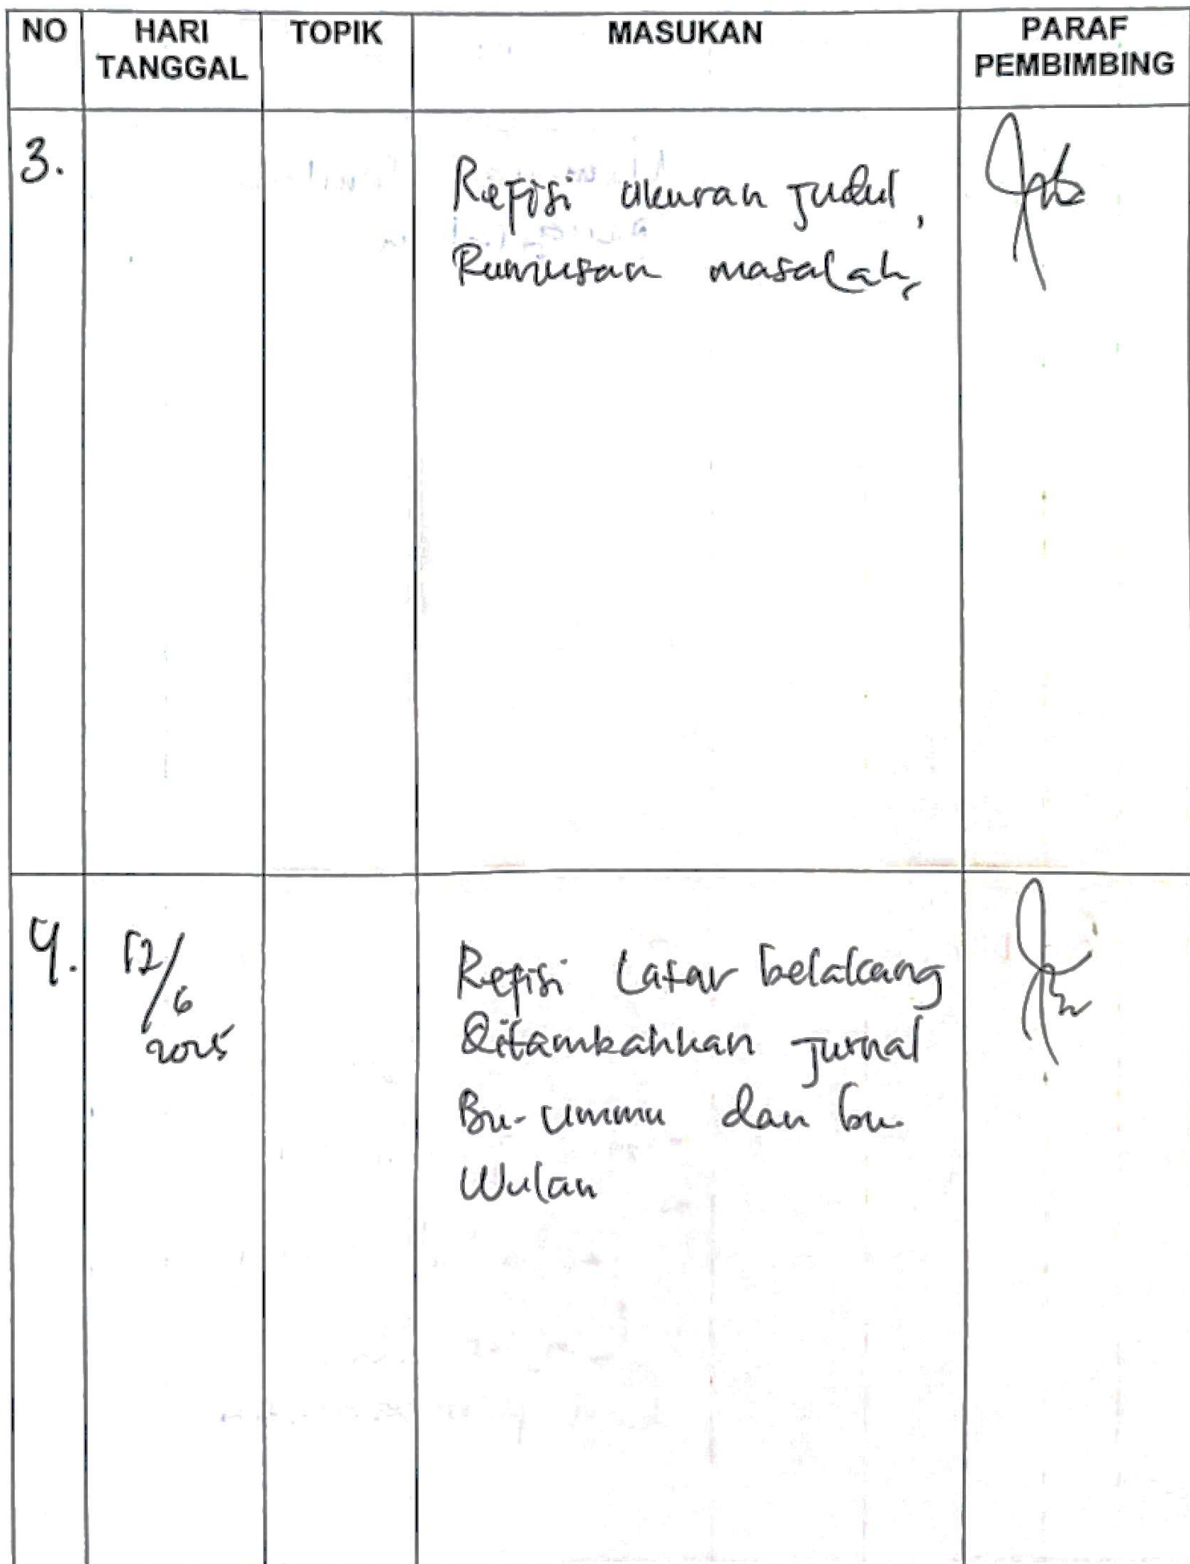 NO HARI TANGGAL TOPIK MASUKAN PARAF PEMBIMBING
3.
Refisi ukuran judul,
Rumusan masalah,
4. 12/6 2025
Refisi Latar belakang
Ditambahkan jurnal
Bu-Ummu dan bu
Wulan